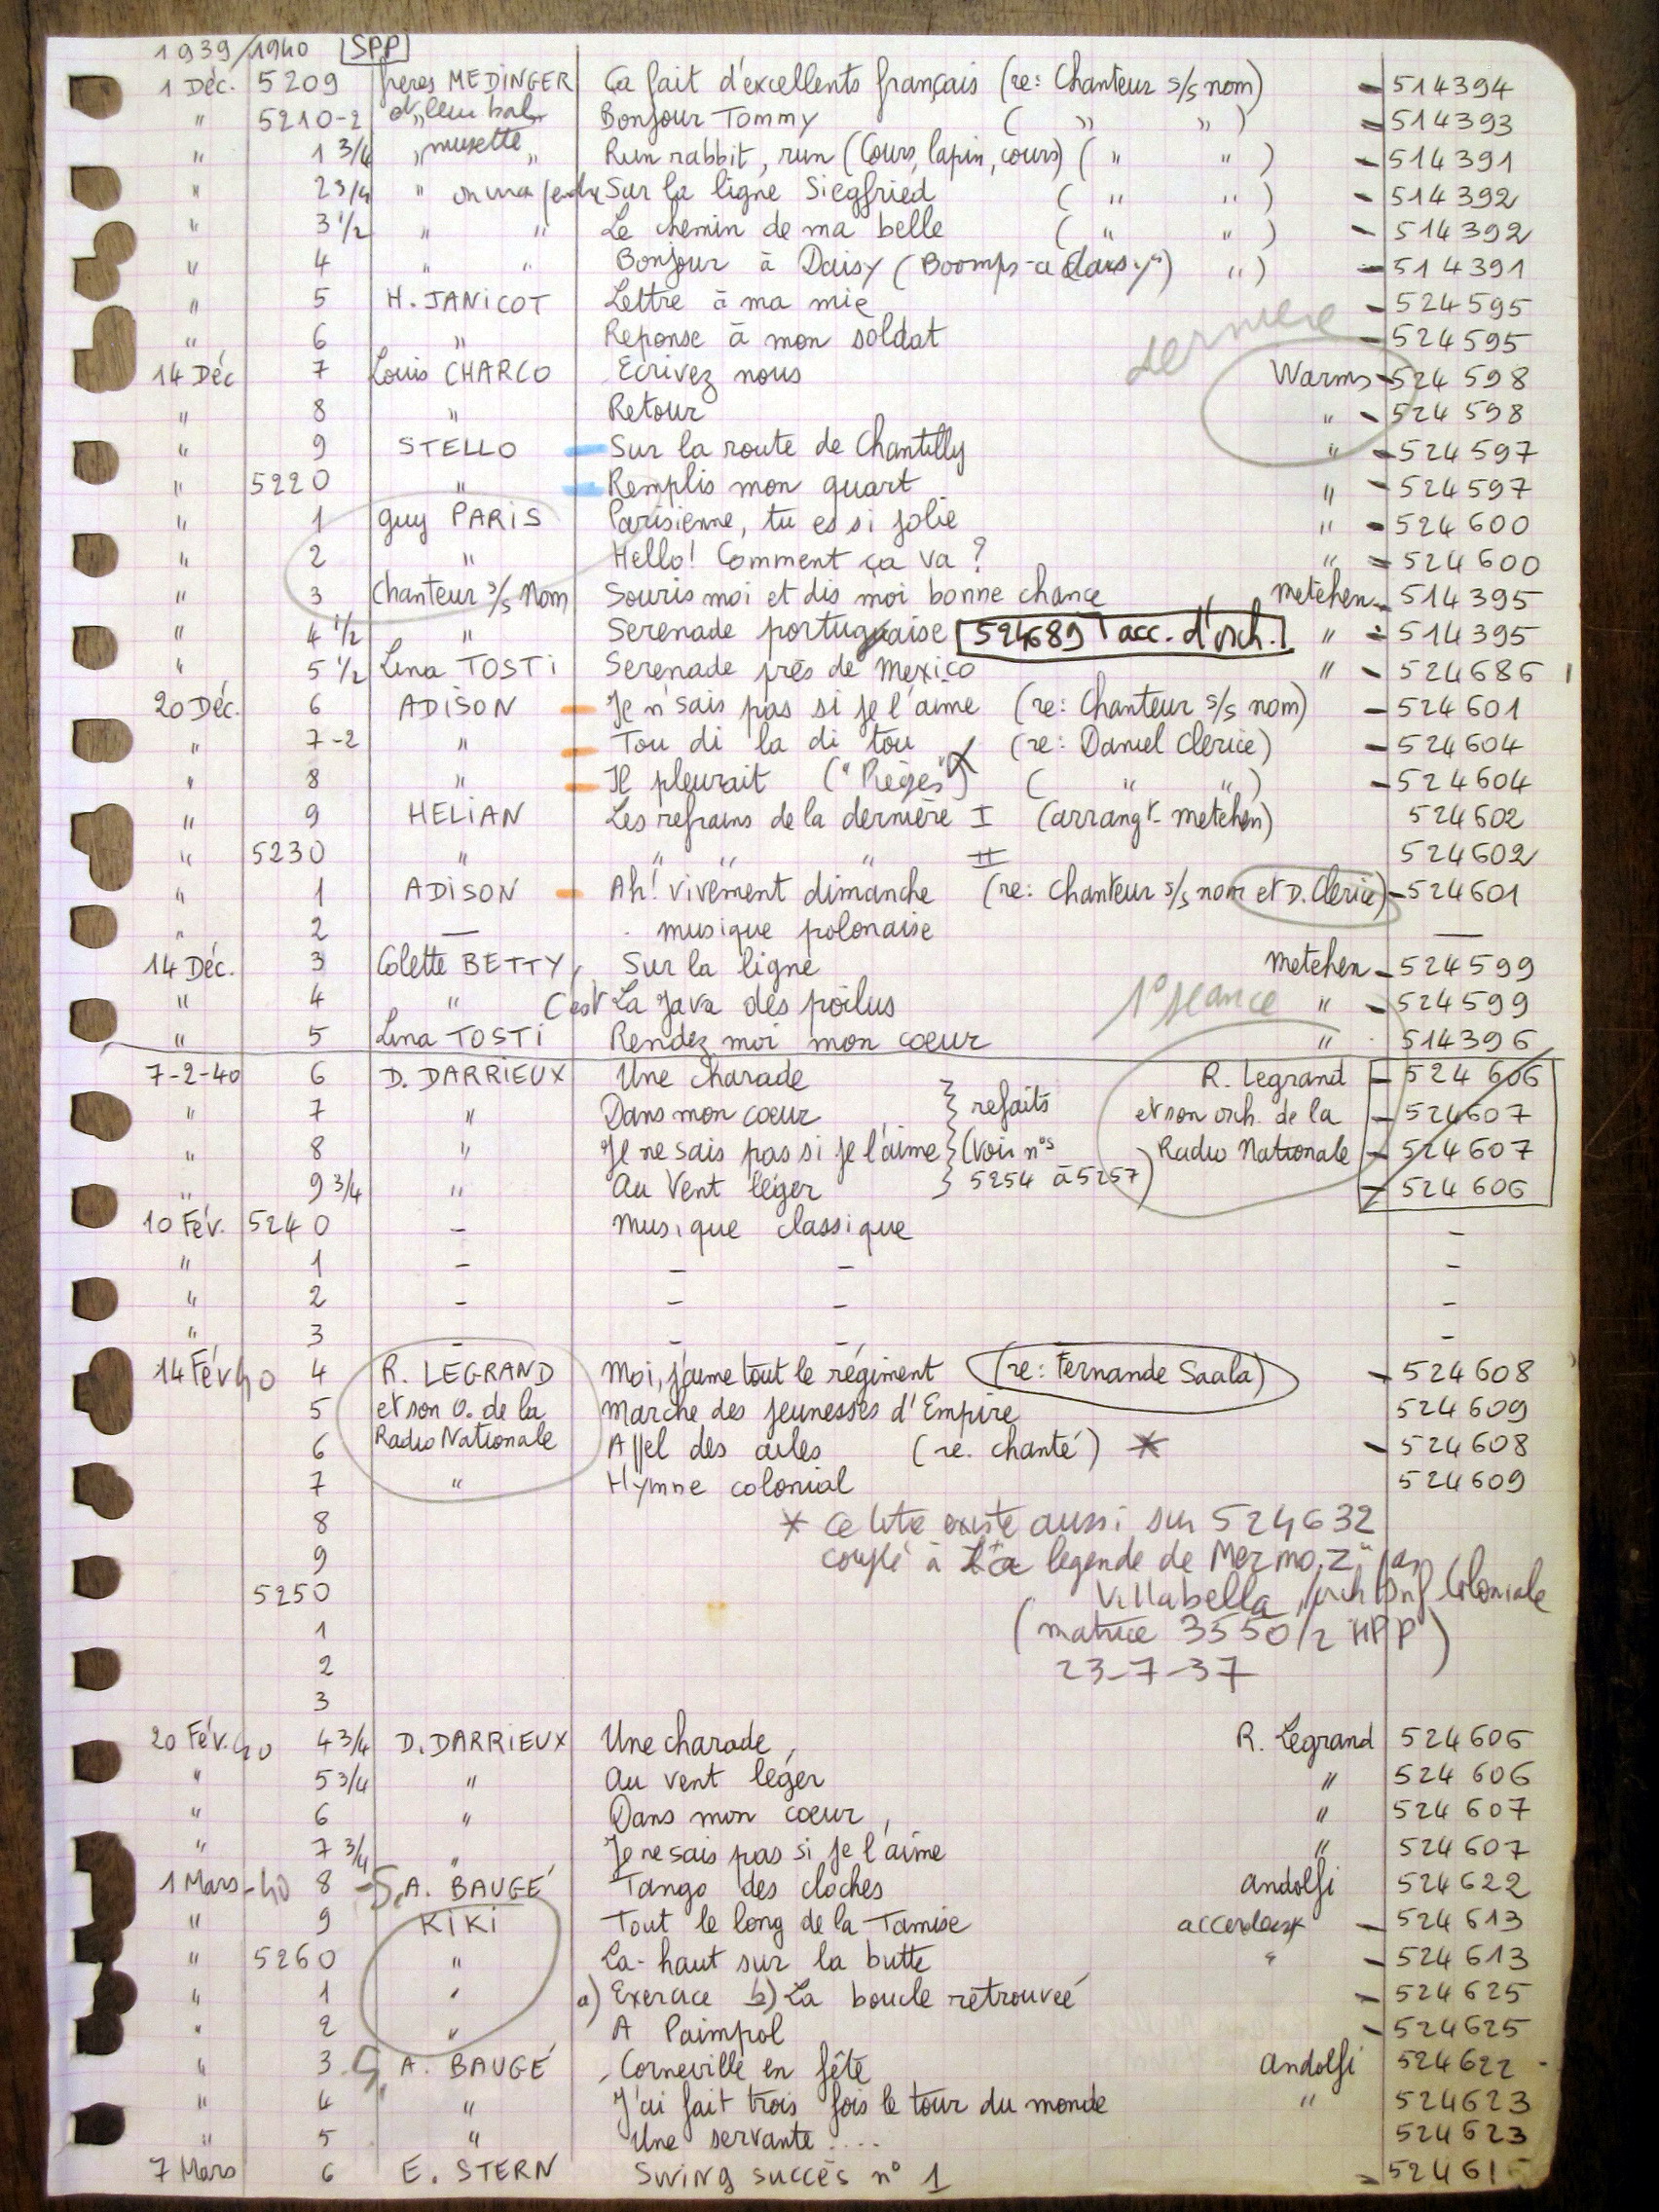 1939/1940 SPP
1 Déc. 5209 frères MEDINGER Ça fait d'excellents français (re: Chanteur s/s nom) - 514394
" 5210-2 et leur bal Bonjour Tommy ( " " ) - 514393
" 1 3/4 " musette " Run rabbit, run (Cours, lapin, cours) ( " " ) - 514391
" 2 3/4 " on ira pendre Sur la ligne Siegfried ( " " ) - 514392
" 3 1/2 " " Le chemin de ma belle ( " " ) - 514392
" 4 " " Bonjour à Daisy (Boomps-a daisy") " ) - 514391
" 5 H. JANICOT Lettre à ma mie - 524595
" 6 " Reponse à mon soldat - 524595
dernière
14 Déc 7 Louis CHARCO Ecrivez nous Warms - 524598
" 8 " Retour " - 524598
" 9 STELLO - Sur la route de Chantilly " - 524597
" 5220 " - Remplis mon quart " - 524597
" 1 Guy PARIS Parisienne, tu es si jolie " - 524600
" 2 " Hello! Comment ça va ? " - 524600
" 3 Chanteur s/s Nom Souris moi et dis moi bonne chance metehen - 514395
" 4 1/2 " Serenade portugaise 524689 acc. d'orch. " - 514395
" 5 1/2 Lina TOSTI Serenade près de Mexico " - 524686
20 Déc. 6 ADISON - Je n'sais pas si je l'aime (re: Chanteur s/s nom) - 524601
" 7-2 " - Tou di la di tou (re: Daniel Clerice) - 524604
" 8 " - Il pleurait ("Pièges") ( " " ) - 524604
" 9 HELIAN Les refrains de la dernière I (arrangt - metehen) 524602
" 5230 " " " " II 524602
" 1 ADISON - Ah! vivement dimanche (re: chanteur s/s nom et D. Clerice) - 524601
" 2 — musique polonaise —
14 Déc. 3 Colette BETTY Sur la ligne Metehen - 524599
" 4 " C'est La Java des poilus " - 524599
1° séance
" 5 Lina TOSTI Rendez moi mon coeur " 514396
7-2-40 6 D. DARRIEUX Une charade R. Legrand - 524606
" 7 " Dans mon coeur } refaits et son orch. de la - 524607
" 8 " Je ne sais pas si je l'aime } (voir n°s Radio Nationale - 524607
" 9 3/4 " Au Vent léger } 5254 à 5257) - 524606
10 Fév. 5240 - Musique classique -
" 1 - - - -
" 2 - - - -
" 3 - - - -
14 Fév 40 4 R. LEGRAND Moi, j'aime tout le régiment (re: Fernande Saala) - 524608
5 et son O. de la Marche des jeunesses d'Empire 524609
6 Radio Nationale Appel des ailes (re. chanté) * - 524608
7 " Hymne colonial 524609
8 * ce titre existe aussi sur 524632
9 couplé à "La legende de Mermoz" par
5250 Villabella, orch Conf Coloniale
1 (matrice 3550/2 HPP)
2 23-7-37
3
20 Fév. 40 4 3/4 D. DARRIEUX Une charade R. Legrand 524606
" 5 3/4 " Au vent léger " 524606
" 6 " Dans mon coeur " 524607
" 7 3/4 " Je ne sais pas si je l'aime " 524607
1 Mars - 40 8 A. BAUGÉ Tango des cloches Andolfi 524622
" 9 KIKI Tout le long de la Tamise - 524613
" 5260 " La-haut sur la butte " - 524613
" 1 " a) Exercice b) La boucle retrouvée - 524625
" 2 " A Paimpol - 524625
" 3 A. BAUGÉ Corneville en fête Andolfi 524622 -
" 4 " J'ai fait trois fois le tour du monde " 524623
" 5 " Une servante .... 524623
7 Mars 6 E. STERN Swing succès n° 1 - 524615